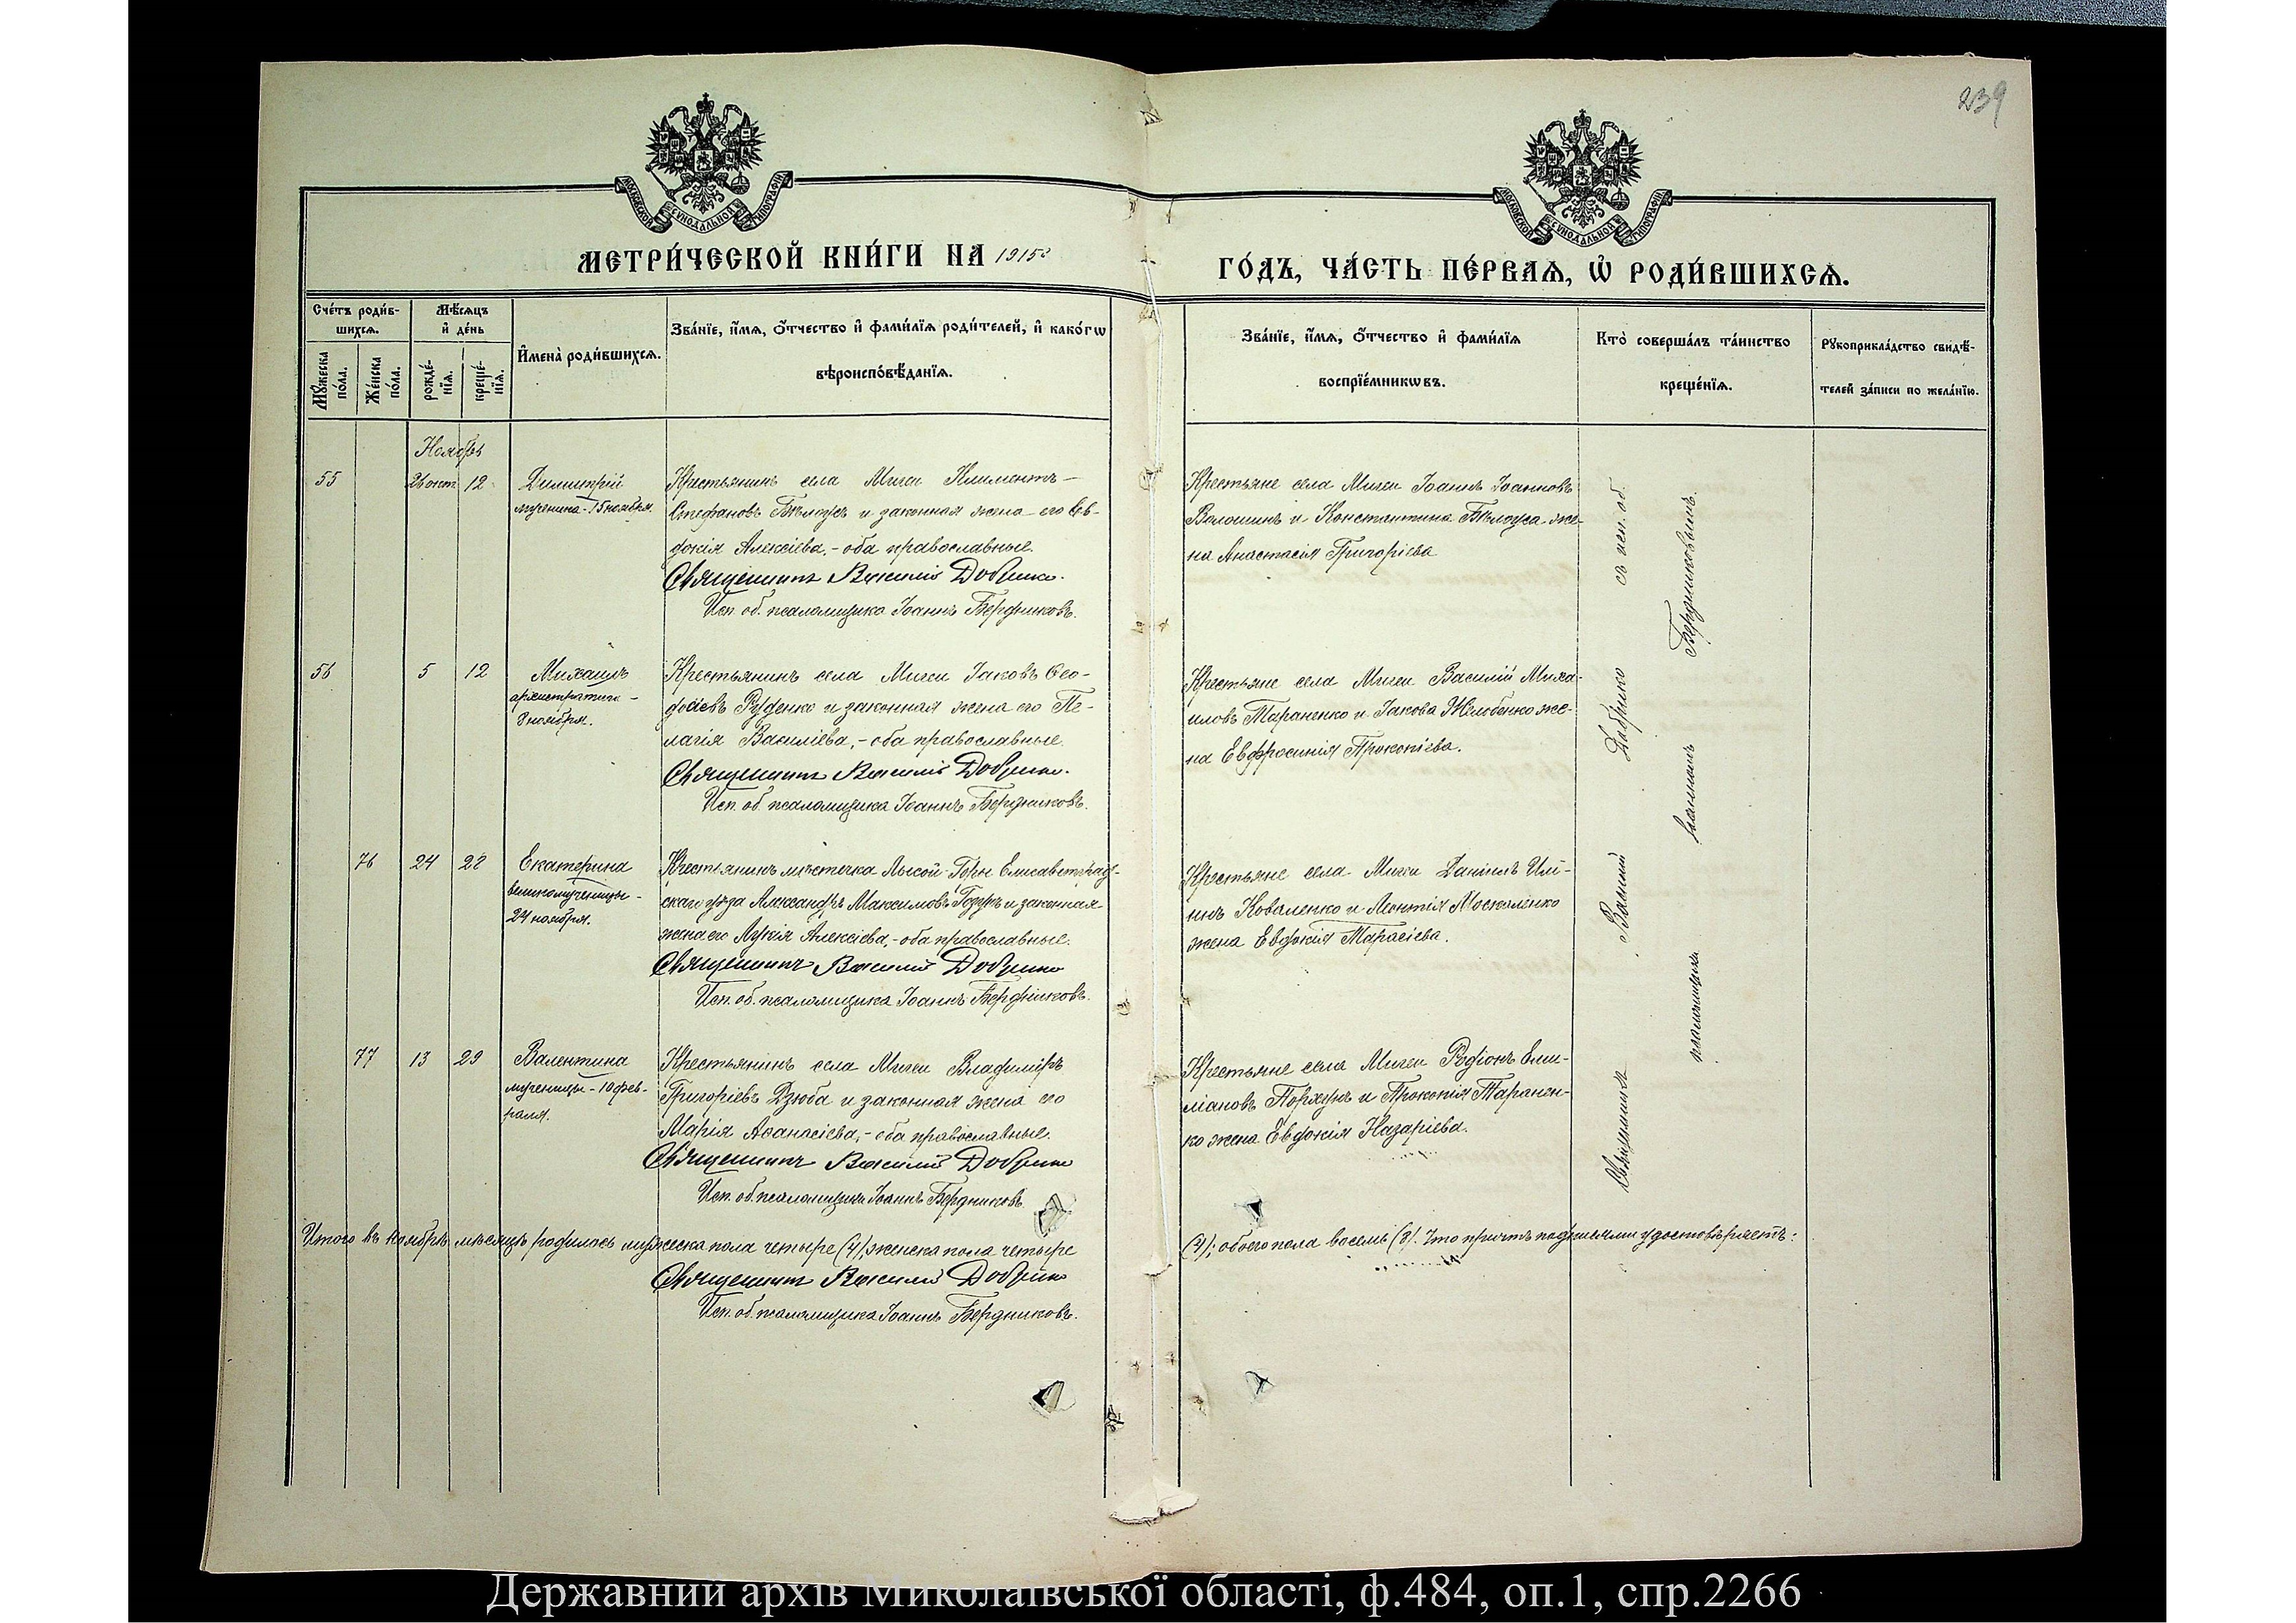 239
МОСКОВСКОЙ СѴНОДАЛЬНОЙ ТИПОГРАФІИ
МОСКОВСКОЙ СѴНОДАЛЬНОЙ ТИПОГРАФІИ
МЕТРИ́ЧЕСКОЙ КНИ́ГИ НА 1915 г
ГО́ДЪ, ЧА́СТЬ ПЕ́РВАѦ, Ѡ РОДИ́ВШИХСѦ.
Сче́тъ роди́в-
шихсѧ.
Мꙋ́жеска по́ла.
Же́нска по́ла.
Мѣ́сѧцъ
и҆ де́нь
рожде́-
нїѧ.
креще́-
нїѧ.
И҆мена̀ роди́вшихсѧ.
Зва́нїе, и҆́мѧ, ѻ҆́тчество и҆ фами́лїѧ роди́телей, и҆ како́гѡ
вѣроисповѣ́данїѧ.
Зва́нїе, и҆́мѧ, ѻ҆́тчество и҆ фами́лїѧ
воспрїе́мникѡвъ.
Кто̀ соверша́лъ та́инство
креще́нїѧ.
Рꙋкоприкла́дство свидѣ́-
телей за́писи по жела́нїю.
Ноябрь
55 26 окт 12 Димитрій
мученика - 15 ноября.
Крестьянинъ села Мигеи Климентъ
Стефановъ Бѣлоусъ и законная жена его Ев-
докія Алексіева, - оба православные.
Священникъ Василій Добрико.
Исп. об. псаломщика Іоаннъ Бердниковъ.
Крестьяне села Мигеи Іоаннъ Іоанновъ
Волошинъ и Константина Бѣлоуса же-
на Анастасія Григоріева
56 5 12 Михаилъ
архистратига -
8 ноября.
Крестьянинъ села Мигеи Іаковъ Ѳео-
досіевъ Руденко и законная жена его Пе-
лагія Василіева, - оба православные.
Священникъ Василій Добрико.
Исп. об. псаломщика Іоаннъ Бердниковъ.
Крестьяне села Мигеи Василій Миха-
иловъ Тараненко и Іакова Желобенко же-
на Евфросинія Прокопіева.
76 24 28 Екатерина
великомученицы -
24 ноября.
Крестьянинъ мѣстечка Лысой Горы Елисаветград-
скаго уѣзда Александръ Максимовъ и законная
жена его Лукія Алексіева, - оба православные.
Священникъ Василій Добрико
Исп. об. псаломщика Іоаннъ Бердниковъ.
Крестьяне села Мигеи Даніилъ Иль-
инъ Коваленко и Леонтія Москаленко
жена Евдокія Тарасіева.
77 13 29 Валентина
мученицы - 10 фев-
раля.
Крестьянинъ села Мигеи Владиміръ
Григоріевъ Дзюба и законная жена его
Марія Аѳанасіева, - оба православные.
Священникъ Василій Добрико
Исп. об. псаломщика Іоаннъ Бердниковъ.
Крестьяне села Мигеи Родіонъ Еми-
ліановъ Порхунъ и Прокопія Таранен-
ко жена Евдокія Назаріева.
Священникъ Василій Добрико съ исп. об.
псаломщика Іоанномъ Бердниковымъ.
Итого въ ноябрѣ мѣсяцѣ родилось мужеска пола четыре (4) женска пола четыре
(4); обоего пола восемь (8). Что причтъ подписями удостовѣряетъ:
Священникъ Василій Добрико
Исп. об. псаломщика Іоаннъ Бердниковъ.
Державний архів Миколаївської області, ф.484, оп.1, спр.2266